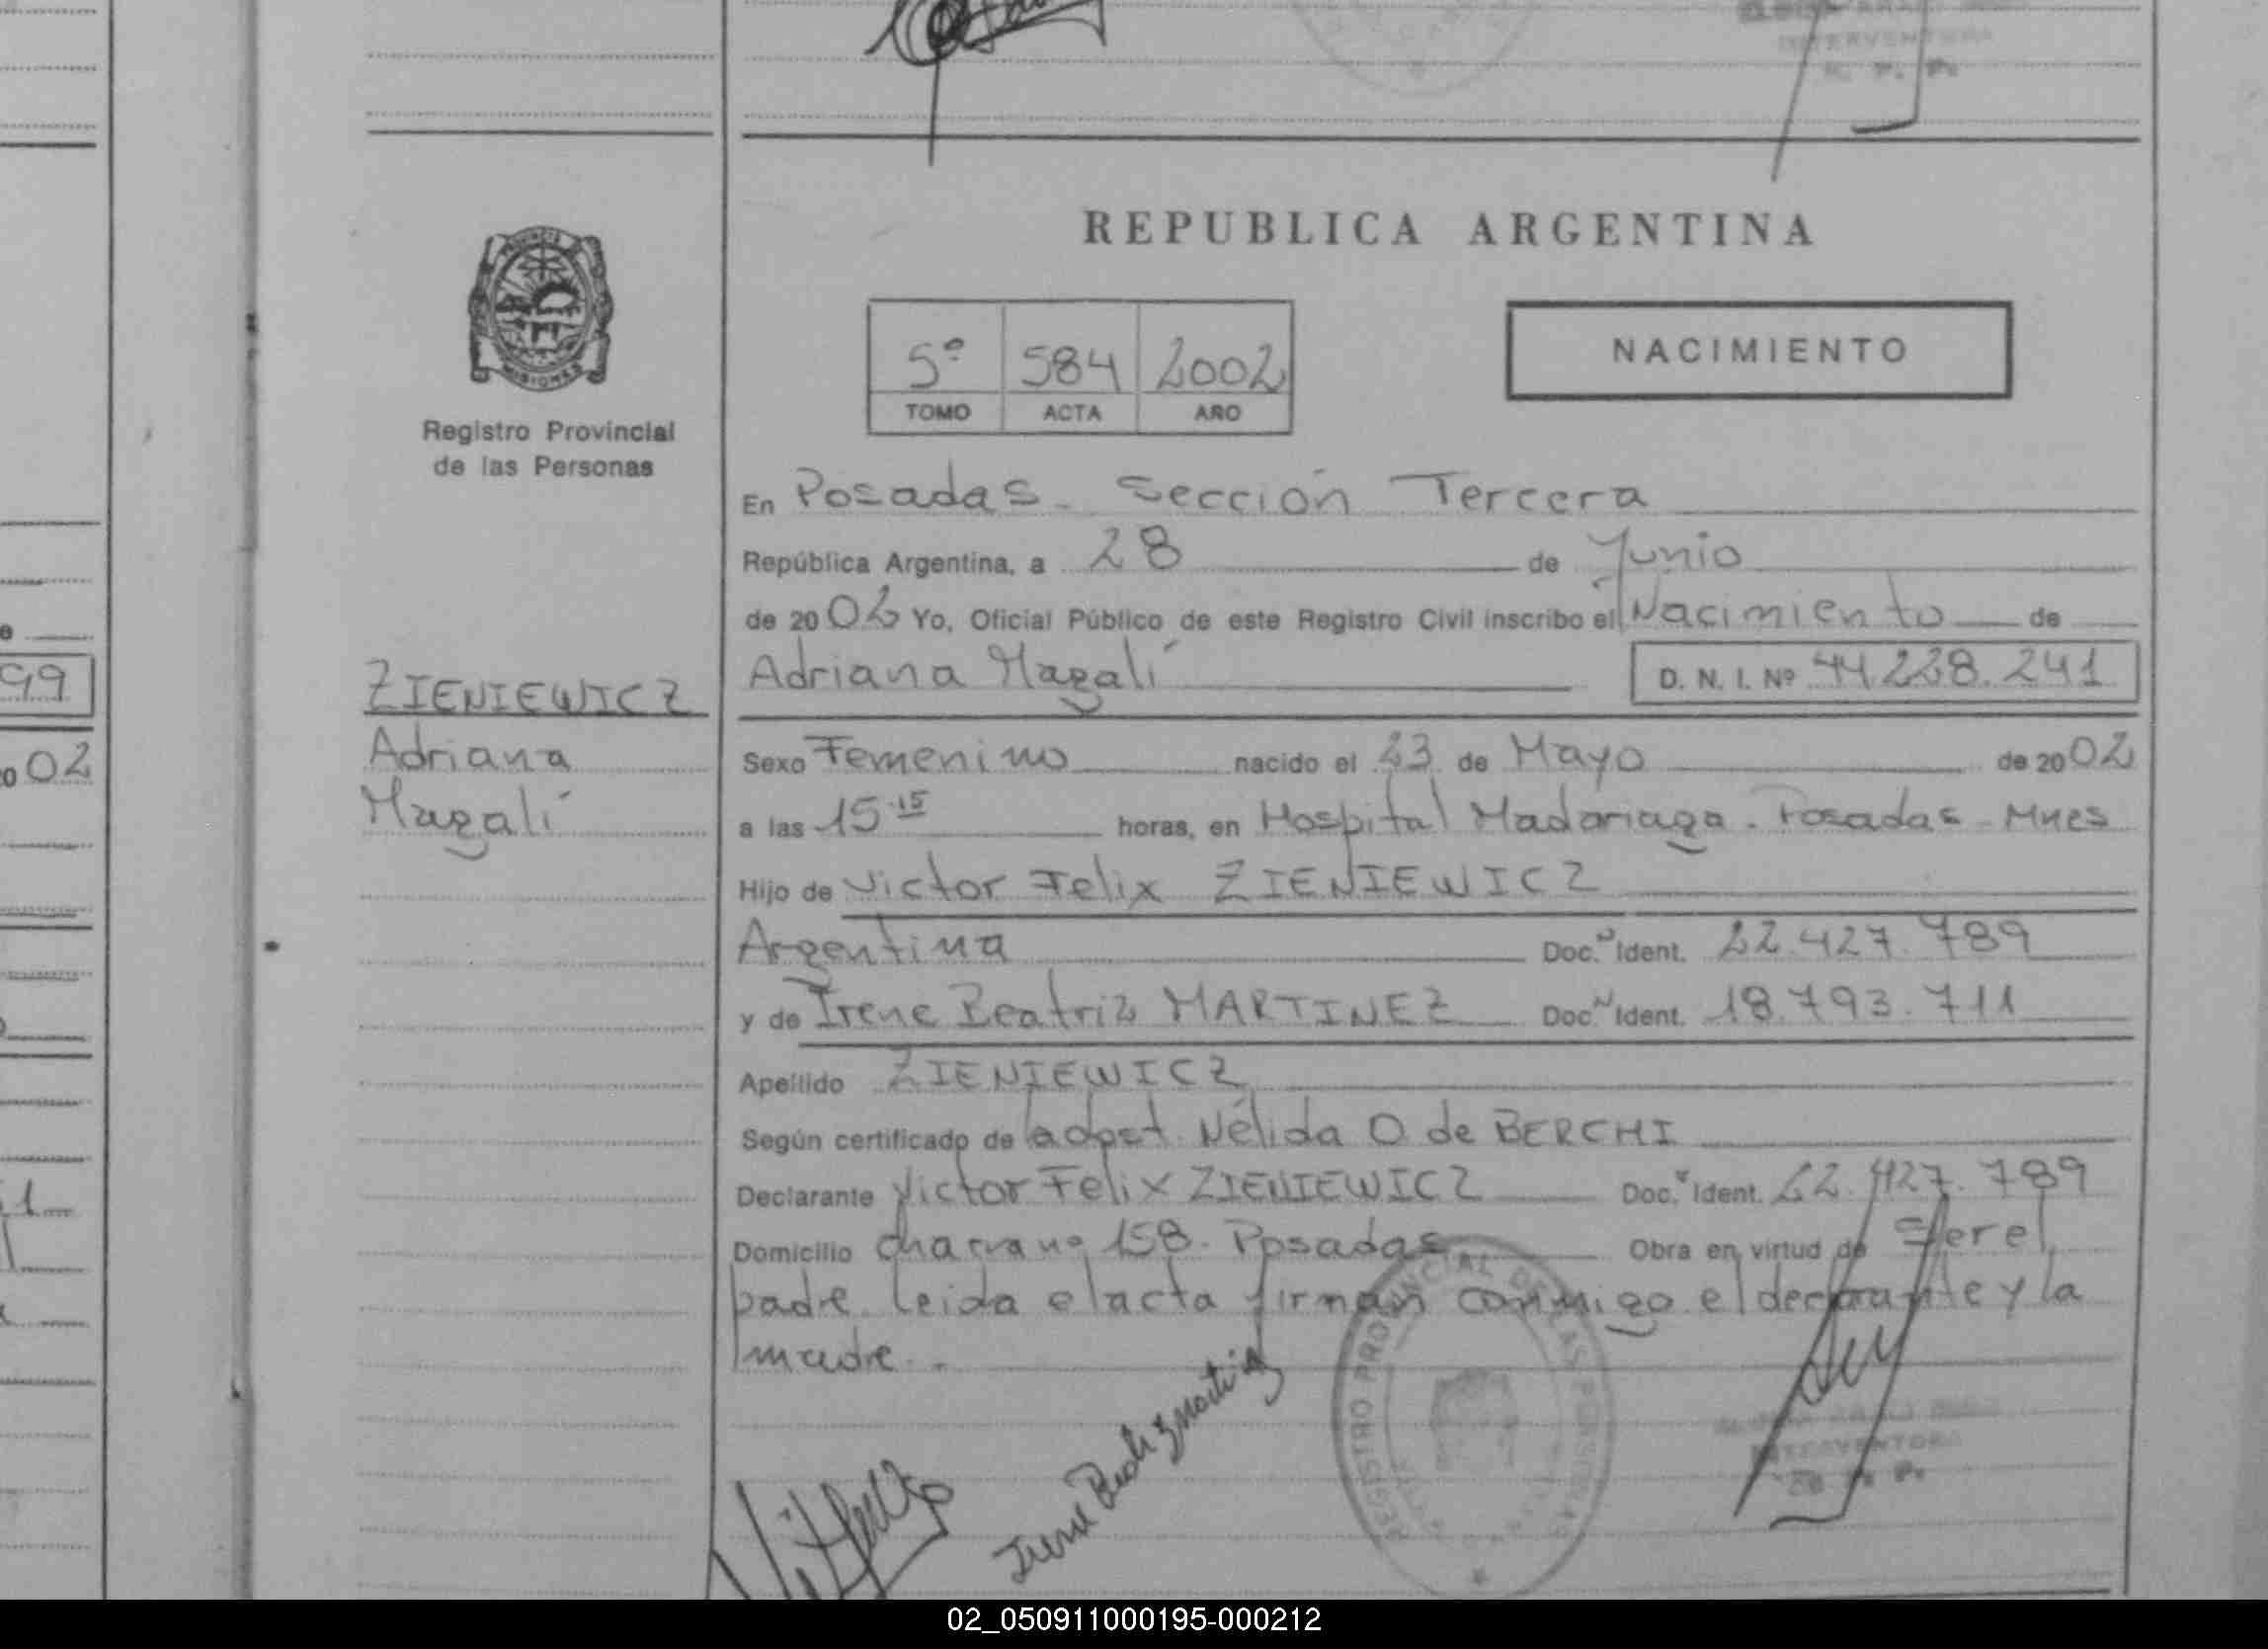 INTERVENTORA
R. P. P.
REPUBLICA ARGENTINA
MISIONES
Registro Provincial
de las Personas
5º 584 2002
TOMO ACTA AÑO
NACIMIENTO
En Posadas - Sección Tercera
República Argentina, a 28 de Junio
de 2002 Yo, Oficial Público de este Registro Civil inscribo el Nacimiento de
99
ZIENIEWICZ
Adriana Magalí D. N. I. Nº 44.228.241
2002
Adriana
Magalí
Sexo Femenino nacido el 23 de Mayo de 2002
a las 15.15 horas, en Hospital Madariaga - Posadas - Mnes
Hijo de Victor Felix ZIENIEWICZ
Argentina Doc. Ident. 22.427.789
y de Irene Beatriz MARTINEZ Doc. Ident. 18.793.711
Apellido ZIENIEWICZ
Según certificado de la obst. Nélida O. de BERCHI
Declarante Victor Felix ZIENIEWICZ Doc. Ident. 22.427.789
Domicilio chacra nº 158 - Posadas Obra en virtud de Ser el
padre. leida el acta firman conmigo el declarante y la
madre. -
Irene Beatriz Martinez
REGISTRO PROVINCIAL DE LAS PERSONAS
INTERVENTORA
R. P. P.
02_050911000195-000212